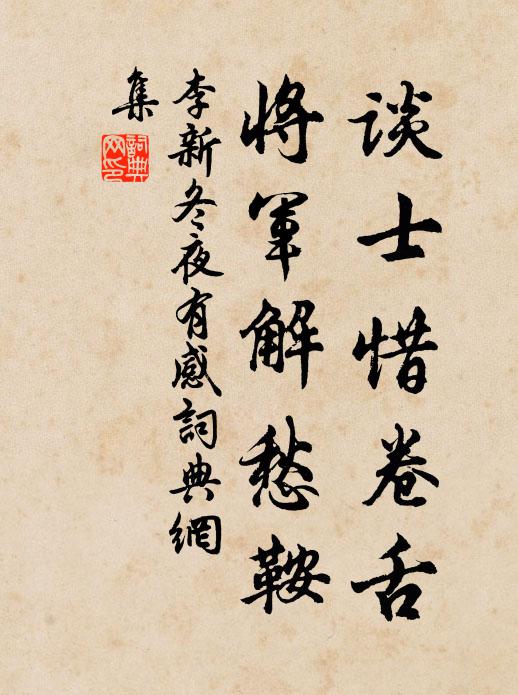 谈士惜卷舌
將軍解愁鞍
李新冬夜有感詞典網
集
詞典网印